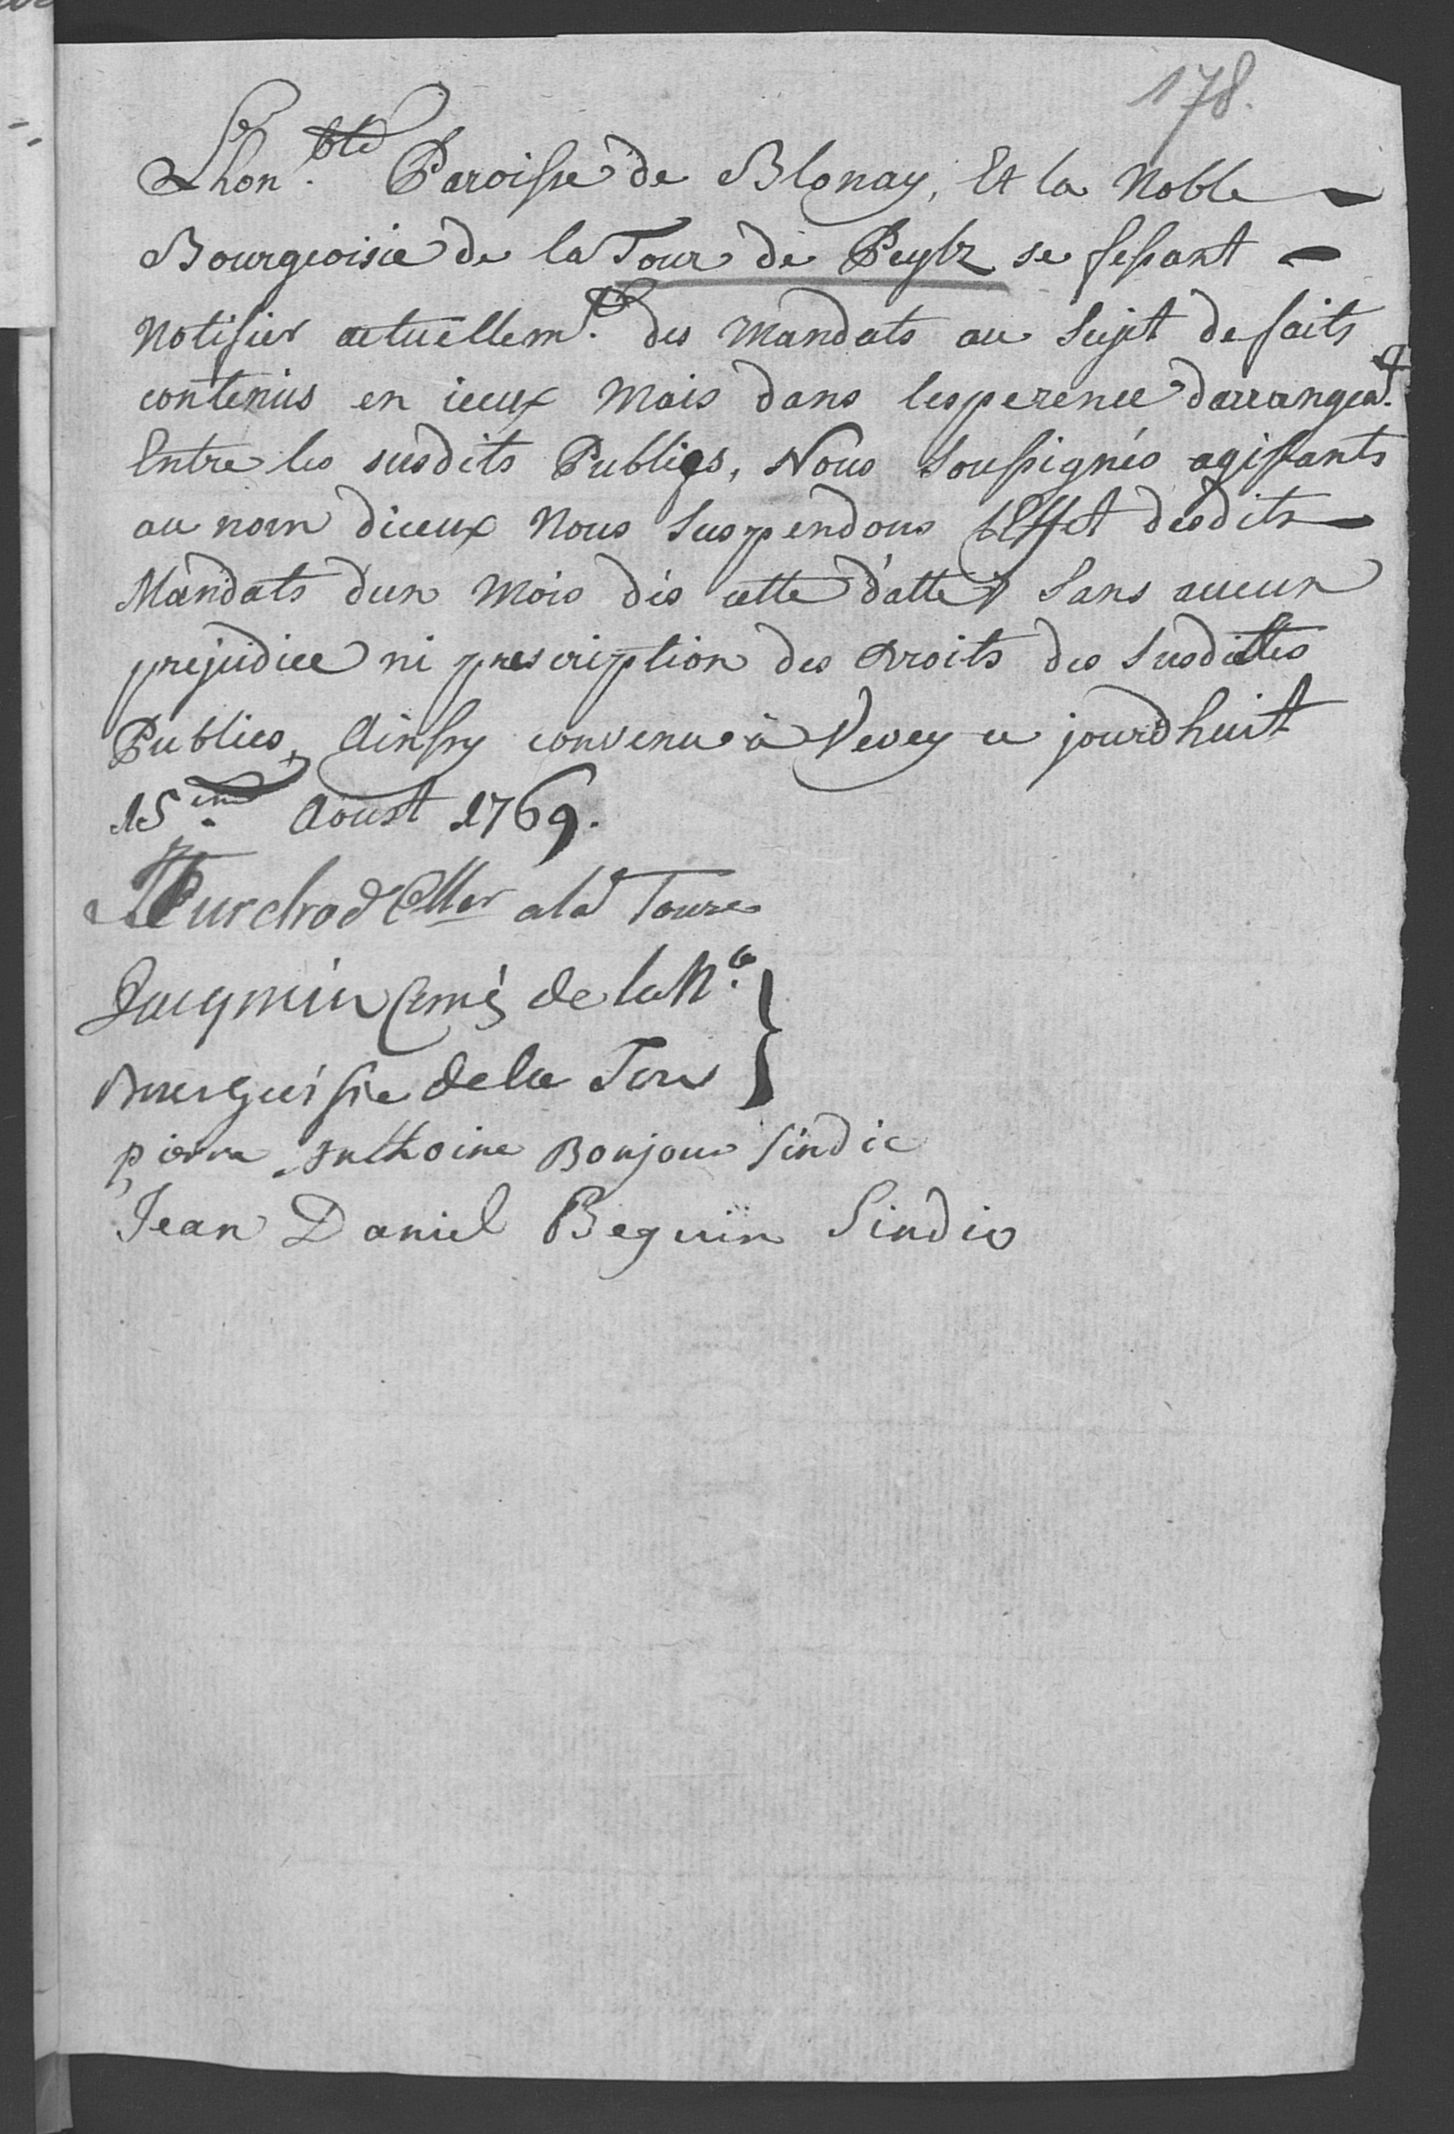 178.
Lhon.ble Paroisse de Blonay, Et la Noble
Bourgeoisie de la Tour de Peylz se fesant
Notifier actuellem.t des Mandats au Sujet de faits
contenus en iceux Mais dans lesperence darrangem.t
Entre les susdits Publics, Nous Soussignés agissants
au nom diceux Nous Suspendons LEffet desdits
Mandats dun Mois dès cette datte Sans aucun
prejudice ni prescription des droits des Susdittes
Publics, Ainssy convenu à Vevey ce jourdhuit
15.eme Aoust 1769.
ala Tour
de la N.e
de la Tour
pierre Anthoine Bonjour Sindic
Jean Daniel Beguin Sindic